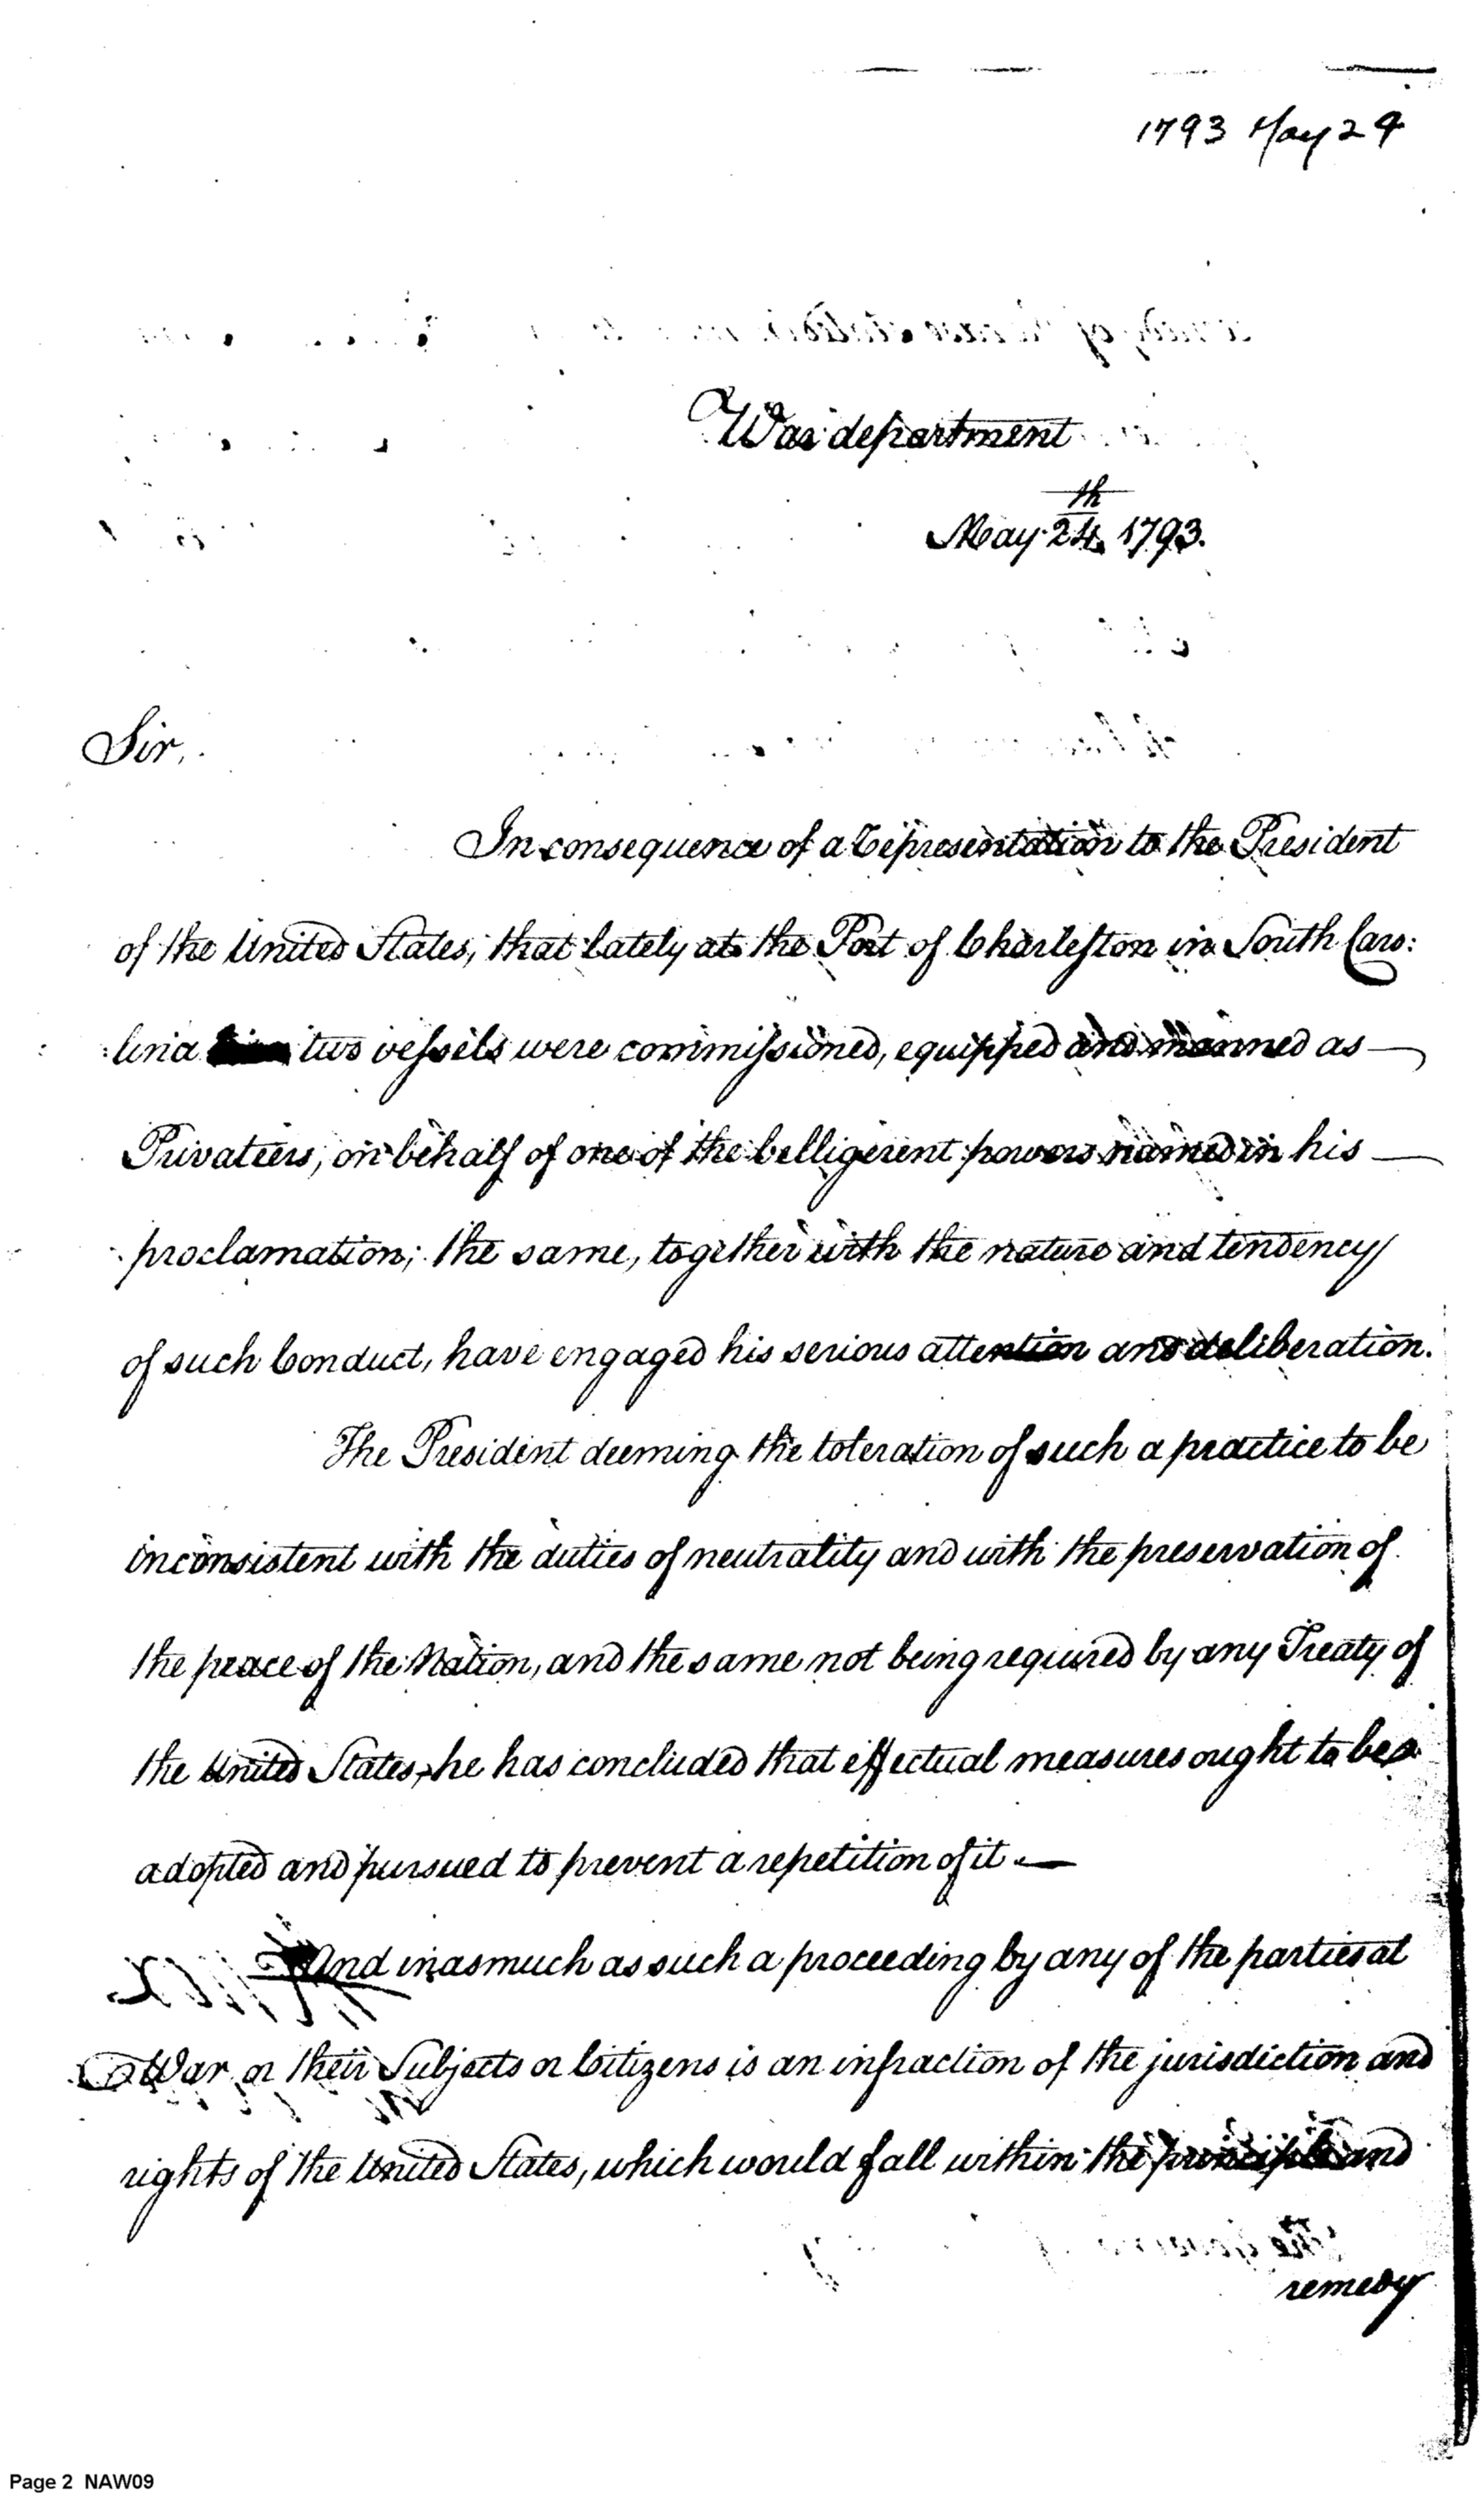 1793 May 24
War department
May 24th 1793.
Sir,
In consequence of a Representation to the President
of the United States, that lately at the Port of Charleston in South Caro:
:lina two vessels were commissioned, equipped and manned as —
Privateers, on behalf of one of the belligerent powers named in his —
proclamation; the same, together with the nature and tendency
of such Conduct, have engaged his serious attention and deliberation.
The President deeming the toleration of such a practice to be
inconsistent with the duties of neutrality and with the preservation of
the peace of the Nation, and the same not being required by any Treaty of
the United States, he has concluded that effectual measures ought to be
adopted and pursued to prevent a repetition of it —
And inasmuch as such a proceeding by any of the parties at
War, or their Subjects or Citizens is an infraction of the jurisdiction and
rights of the United States, which would fall within the principle and
remedy
Page 2 NAW09